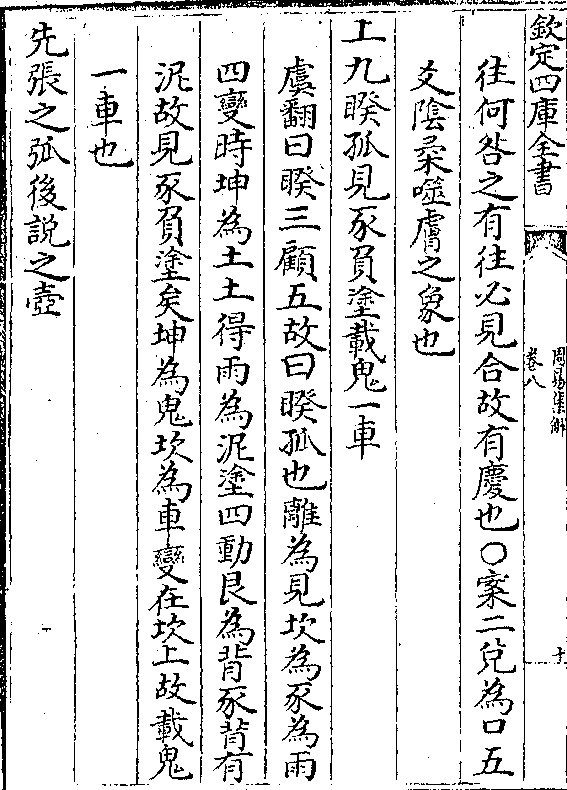 欽定四庫全書
周易集解
卷八
十
往何咎之有往必見合故有慶也○案二兌為口五
爻陰柔噬膚之象也
上九睽孤見豕負塗載鬼一車
虞翻曰睽三顧五故曰睽孤也離為見坎為豕為雨
四變時坤為土土得雨為泥塗四動艮為背豕背有
泥故見豕負塗矣坤為鬼坎為車變在坎上故載鬼
一車也
先張之弧後說之壺